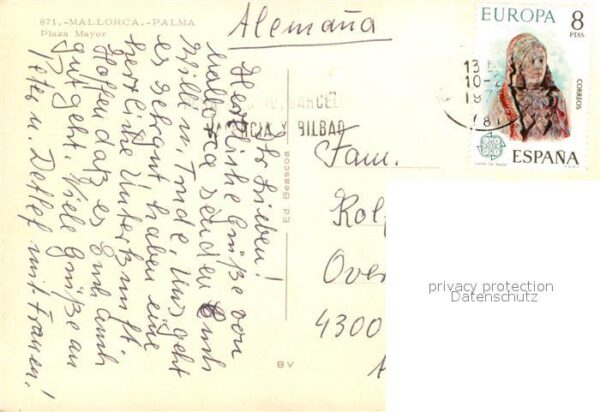 871.-MALLORCA.-PALMA
Plaza Mayor
Alemaña
EUROPA 8
PTAS
CORREOS
ESPAÑA
13
10-2
19
78
BARCEL
VALENCIA Y BILBAO
Ihr Lieben!
Herzliche Grüße von
Mallorca senden Euch
Willi u. Trude. Uns geht
es sehr gut haben eine
herrliche Unterkunft.
Hoffen daß es Euch auch
gut geht. Viele Grüße an
Peter u. Detlef mit Frauen!
Ed. Beascoa
BV
Fam.
Rol
Over
4300
privacy protection
Datenschutz